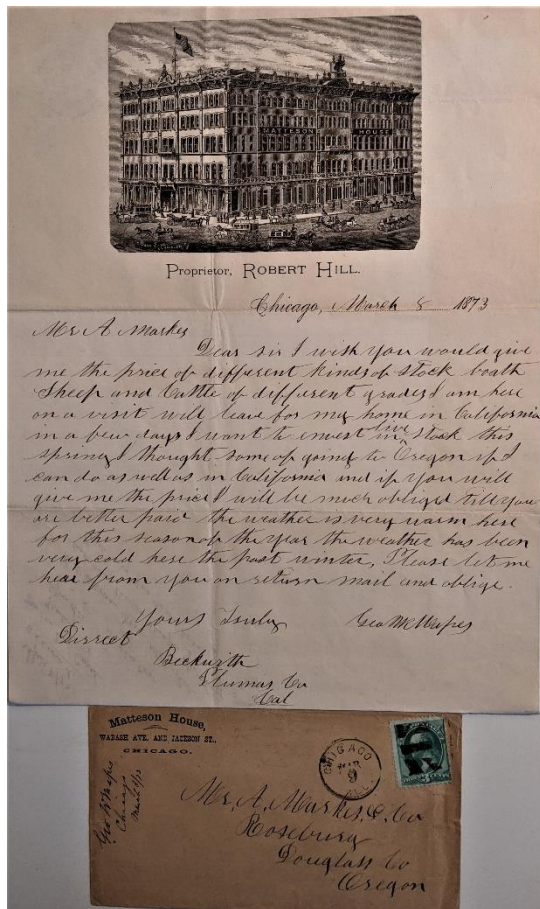 MATTESON HOUSE
Proprietor, ROBERT HILL.
Chicago, March 8 1873
Mr A Markes
Dear sir I wish you would give
me the price of different kinds of stock boath
Sheep and Cattle of different grades I am here
on a visit will leave for my home in California
in a few days I want to envest in live stock this
spring I thought some of going to Oregon if I
can do as well as in California and if you will
give me the price I will be much obliged till you
are better paid the weather is very warm here
for this season of the year the weather has been
very cold here the past winter, Please let me
hear from you on return mail and oblige.
Yours Truly Geo W Mapes
Direct
Beckwith
Plumas Co
Cal
Matteson House,
WABASH AVE. AND JACKSON ST.,
CHICAGO.
Geo W Mapes
Chicago
CHICAGO
MAR
9
ILL.
Mr. A. Markes & Co
Roseburg
Douglass Co
Oregon